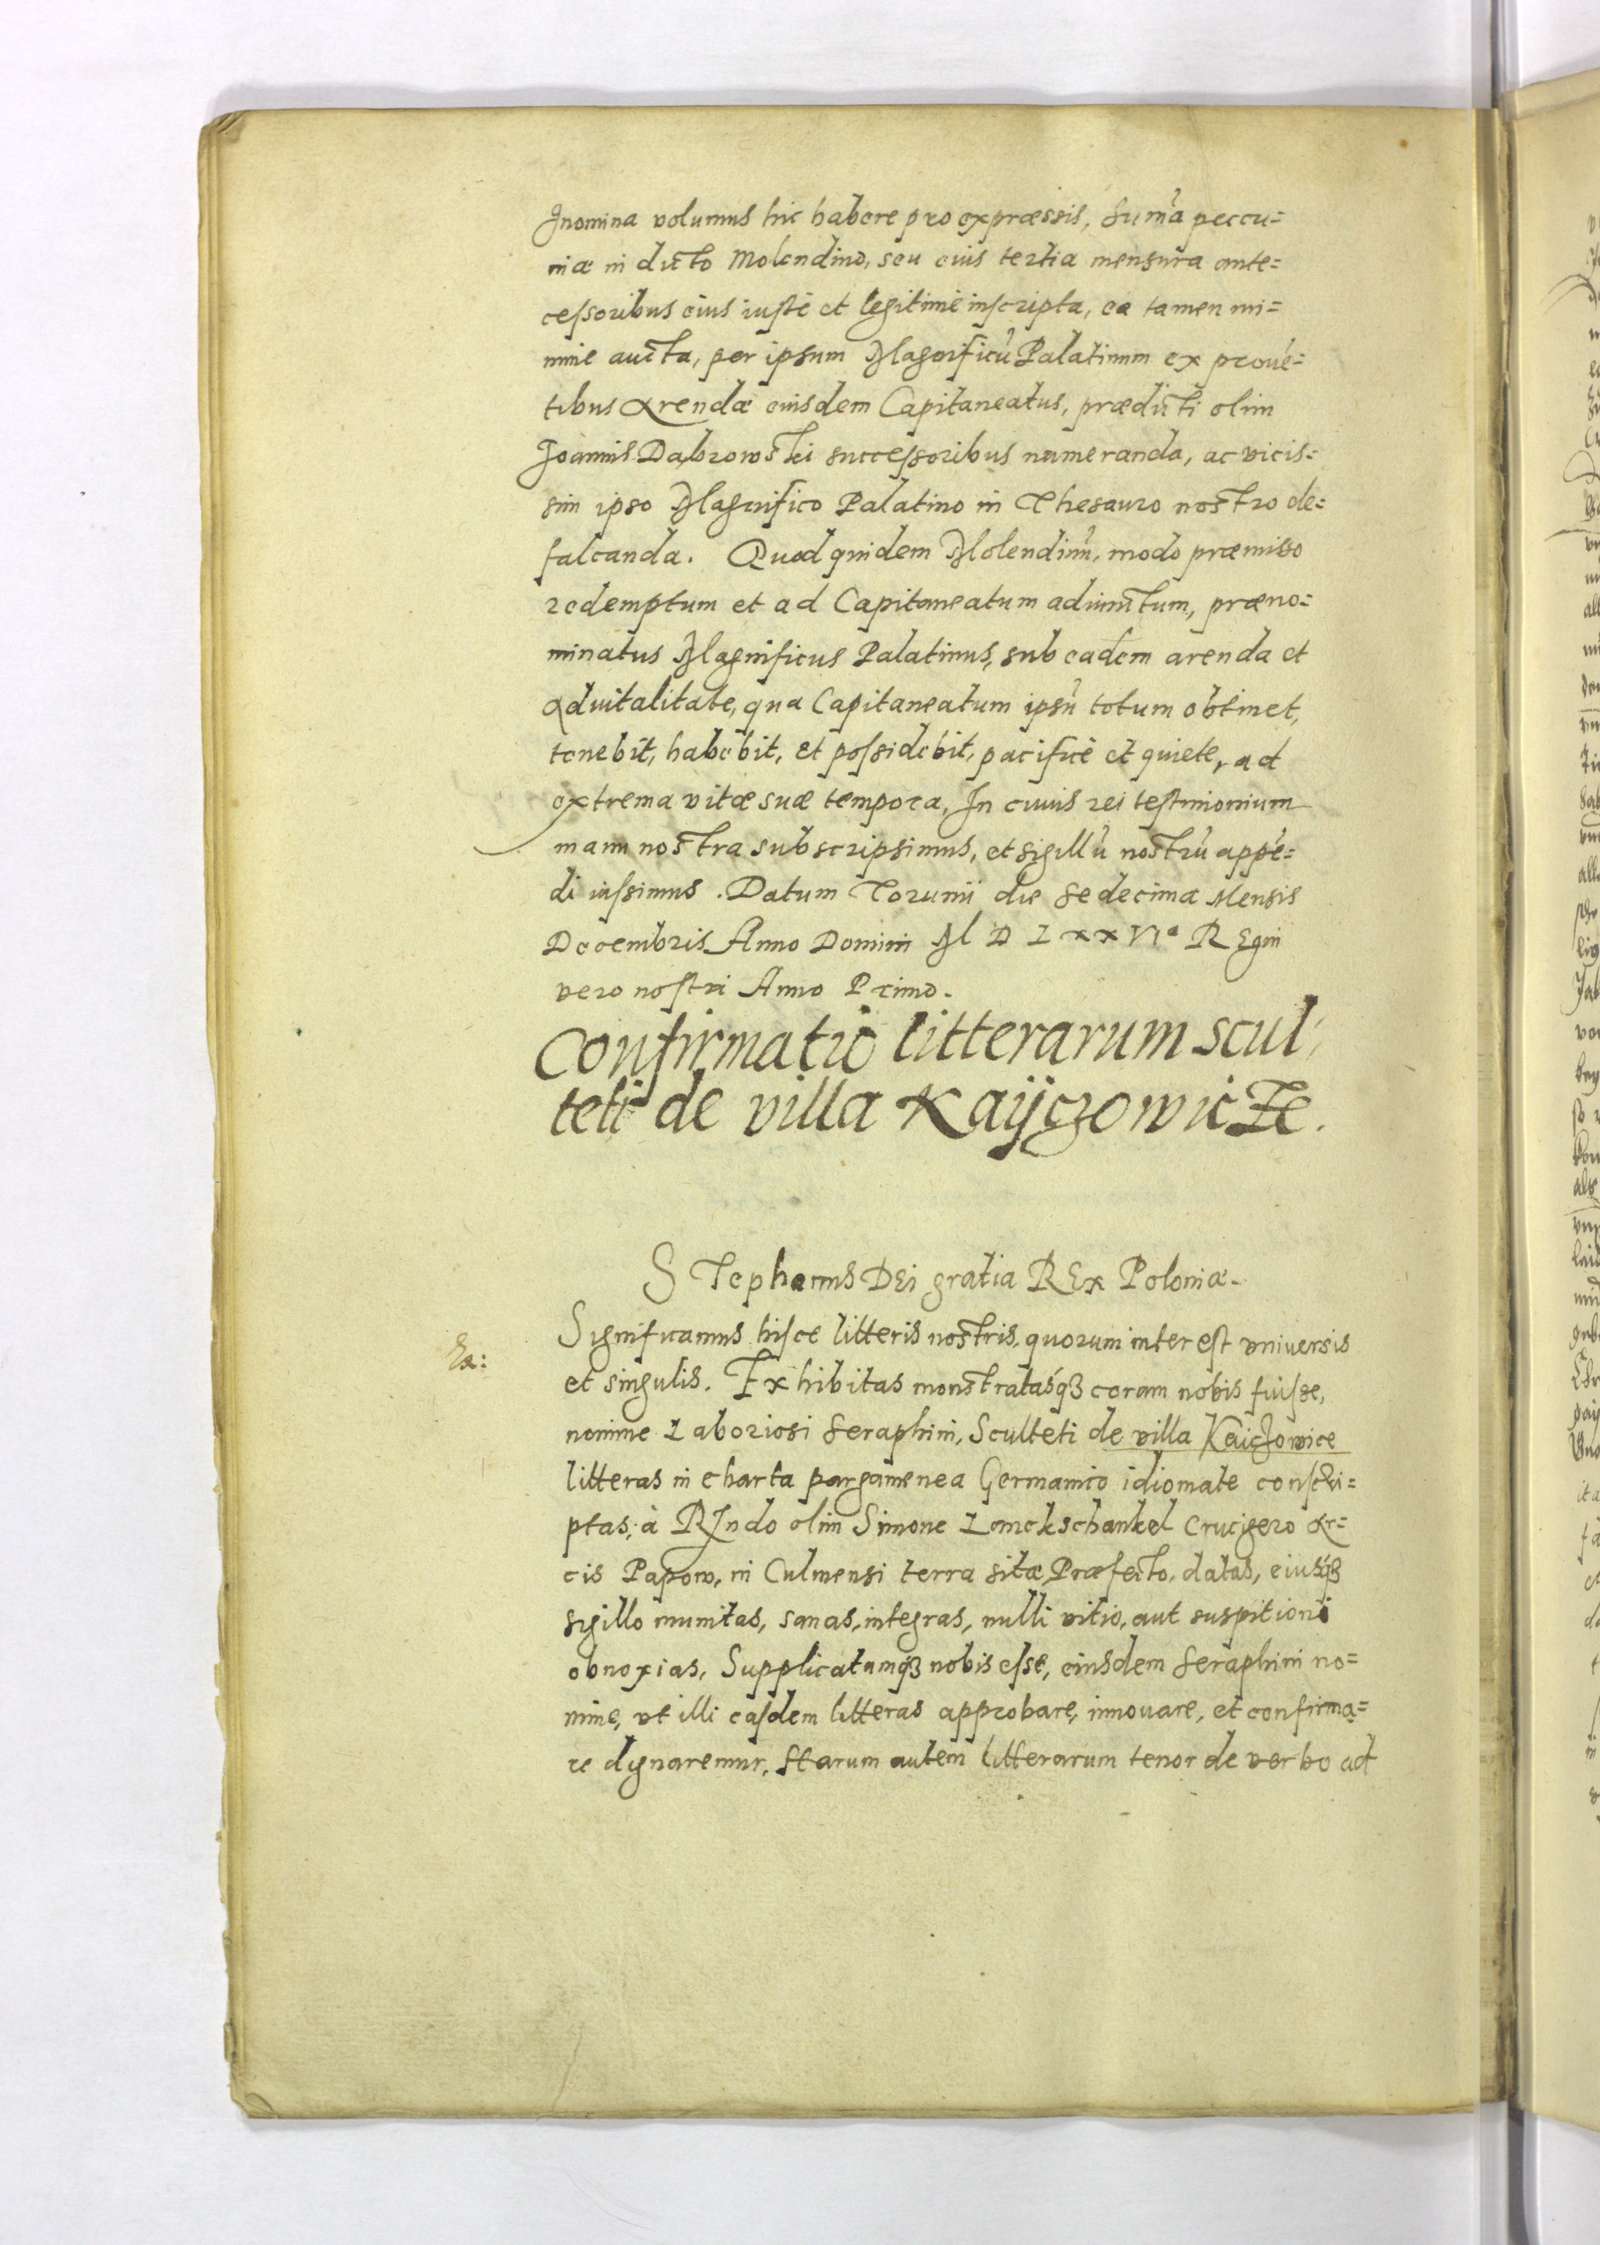 Inomina volumus hic habere pro expræssis, Sum̃a peccu=
niæ in dicto Molendino, seu eius tertia mensura ante=
cessoribus eius iustè et legitimè inscripta, ea tamen mi=
nime aucta, per ipsum Magnificũ Palatinum ex provẽ=
tibus Arendæ eiusdem Capitaneatus, prædicti olim
Joannis Dabrowski successoribus numeranda, ac vicis=
sim ipso Magnifico Palatino in Thesauro nostro de=
falcanda. Quod quidem Molendinũ, modo præmisso
redemptum et ad Capitaneatum adiunctum, præno=
minatus Magnificus Palatinus, sub eadem arenda et
Advitalitate, qua Capitaneatum ipsũ totum obtinet,
tenebit, habebit, et possidebit, pacificè et quiete, ad
extrema vitæ suæ tempora, In cuius rei testimonium
manu nostra subscripsimus, et sigillũ nostrũ appẽ=
di iussimus. Datum Torunii die Sedecima Mensis
Decembris Anno Domini M D LxxVIᵒ REgni
vero nostri Anno Primo.
Confirmatio litterarum scul,
teti de villa Kaijczowicze.
STephanus DEi gratia REx Poloniæ.
Significamus hisce litteris nostris, quorum interest vniversis
Ex:
et singulis. Exhibitas monstratasq́ꝫ coram nobis fuisse,
nomine Laboriosi Seraphini, Sculteti de villa Kaiczowice
litteras in charta pargamenea Germanico idiomate conscri=
ptas, à RIndo olim Simone Lanckschankel Crucigero Ar=
cis Papow, in Culmensi terra sitæ, Præfecto, datas, eiusq́ꝫ
sigillo munitas, sanas, integras, nulli vitio, aut suspitioni
obnoxias, Supplicatumq́ꝫ nobis esse, eiusdem Seraphini no=
mine, vt illi easdem litteras approbare, innouare, et confirma=
re dignaremur, Quarum autem litterarum tenor de verbo ad